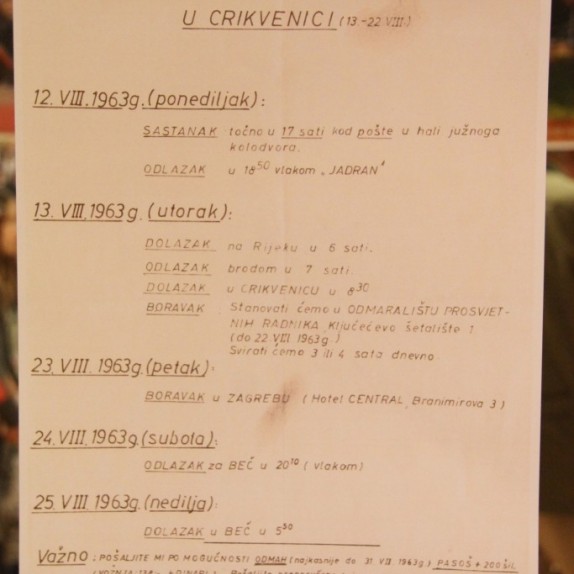 U CRIKVENICI (13.-22.VIII.)
12. VIII. 1963g. (ponediljak):
SASTANAK točno u 17 sati kod pošte u hali južnoga
kolodvora.
ODLAZAK u 18⁵⁰ vlakom „JADRAN"
13. VIII. 1963 g. (utorak):
DOLAZAK na Rijeku u 6 sati.
ODLAZAK brodom u 7 sati.
DOLAZAK u CRIKVENICU u 8³⁰
BORAVAK Stanovati ćemo u ODMARALIŠTU PROSVJET-
NIH RADNIKA, Ključećevo šetalište 1
(do 22.VIII.1963g.)
Svirati ćemo 3 ili 4 sata dnevno
23. VIII. 1963g. (petak):
BORAVAK u ZAGREBU (Hotel CENTRAL, Branimirova 3)
24. VIII. 1963g. (subota):
ODLAZAK za BEČ u 20¹⁰ (vlakom)
25. VIII. 1963g. (nedilja):
DOLAZAK u BEČ u 5⁵⁰
Važno: POŠALJITE MI PO MOGUĆNOSTI ODMAH (najkasnije do 31. VII. 1963g.) PASOŠ + 200 ŠIL.